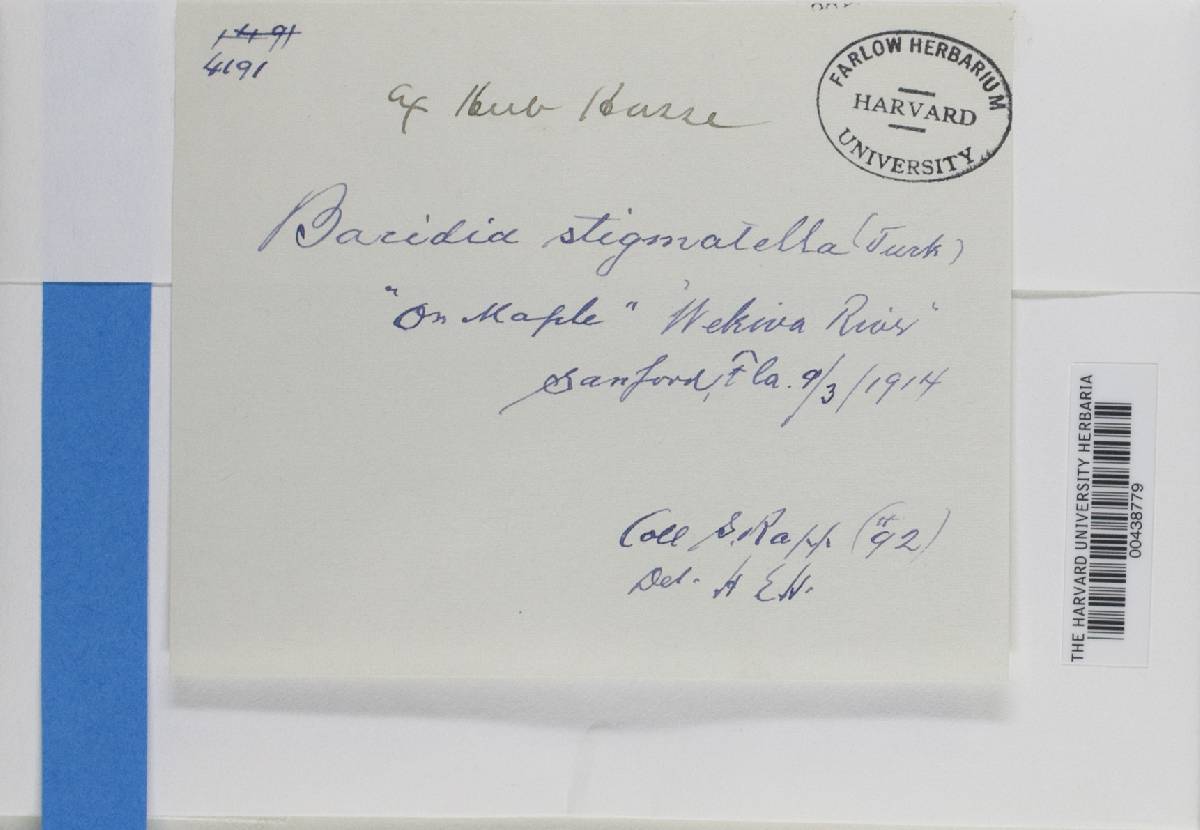 1491
4191
Ex Herb Hasse
FARLOW HERBARIUM
HARVARD
UNIVERSITY
Bacidia stigmatella (Tuck)
"On Maple" "Wekiva River"
Sanford, Fla. 9/3/1914
Coll S. Rapp (#92)
Det. H E H.
THE HARVARD UNIVERSITY HERBARIA
00438779